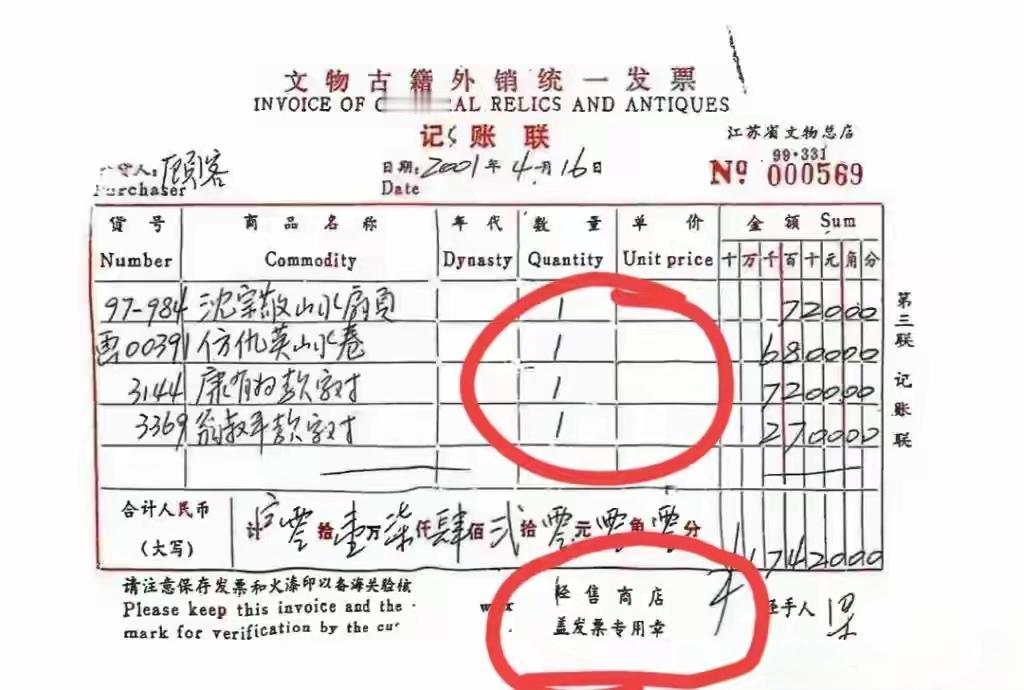 文物古籍外销统一发票
INVOICE OF C AL RELICS AND ANTIQUES
记账联
江苏省文物总店
99·331
Nº 000569
人: 顾客
Purchaser
日期: 2001年4月16日
Date
货号 商品名称 年代 数量 单价 金额 Sum
Number Commodity Dynasty Quantity Unit price 十万千百十元角分
97-984 沈宗敬山水扇页 1 72000
画00391 仿仇英山水卷 1 680000
3144 康有为款字对 1 720000
3369 翁叔平款字对 1 270000
合计人民币
(大写)
计 零拾壹万柒仟肆佰贰拾零元零角零分 1742000
第三联 记账联
请注意保存发票和火漆印以备海关检核
Please keep this invoice and the wax
mark for verification by the cu
经售商店
盖发票专用章
经手人 梁